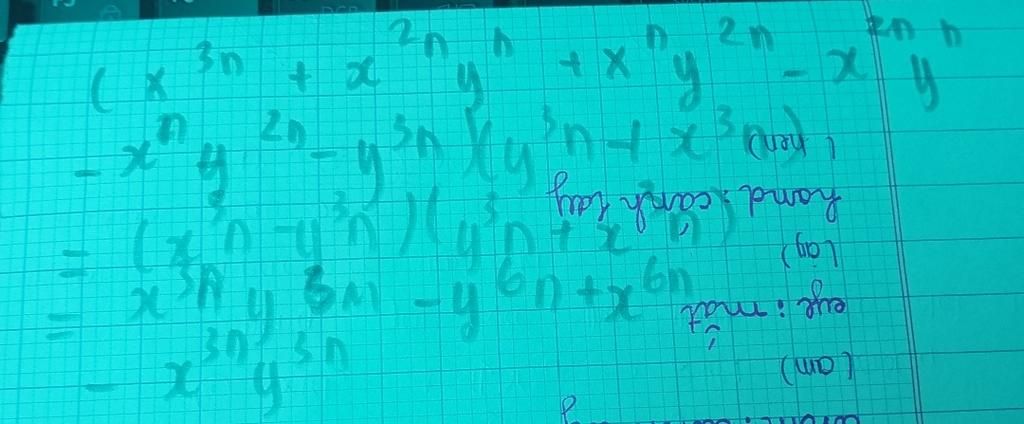 (x^{3n} + x^{2n} y^{n} + x^{n} y^{2n} - x^{2n} y^{n}
- x^{n} y^{2n} - y^{3n})(y^{3n} + x^{3n})
= (x^{3n} - y^{3n})(y^{3n} + x^{3n})
= x^{3n} y^{3n} - y^{6n} + x^{6n}
- x^{3n} y^{3n}
(am)
eye : mắt
(ay)
hand : cánh tay
(hen)